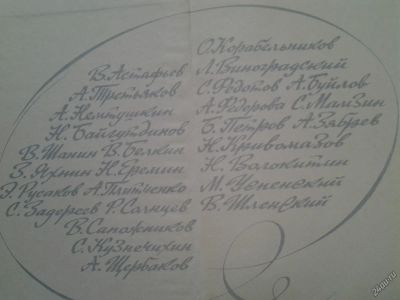 В. Астафьев
А. Третьяков
А. Нелтушкин
Н. Байгутдинов
В. Шанин В. Белкин
З. Яхнин Н. Еремин
Э. Русаков А. Плитченко
С. Задереев Р. Солнцев
В. Сапожников
С. Кузнечихин
А. Щербаков
О. Корабельников
Л. Виноградский
С. Федотов А. Буйлов
А. Федорова С. Мамзин
Б. Петров А. Зябрев
Н. Кривомазов
Н. Волокитин
М. Успенский
В. Шленский
24au.ru